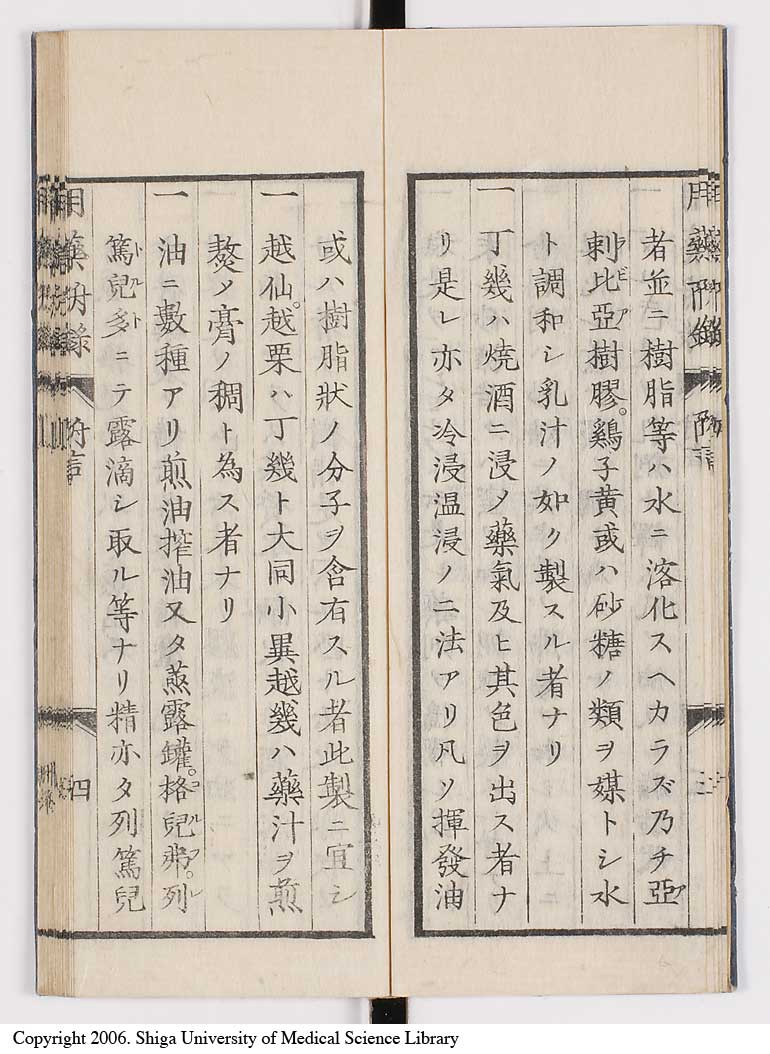 者並ニ樹脂等ハ水ニ溶化スヘカラズ乃チ亞
剌比亞樹膠。鷄子黃或ハ砂糖ノ類ヲ媒トシ水
ト調和シ乳汁ノ如ク製スル者ナリ
一丁幾ハ燒酒ニ浸メ藥氣及ヒ其色ヲ出ス者ナ
リ是レ亦タ冷浸温浸ノ二法アリ凡ソ揮發油
或ハ樹脂狀ノ分子ヲ含有スル者此製ニ宜シ
一越仙。越栗ハ丁幾ト大同小異越幾ハ藥汁ヲ煎
熬メ膏ノ稠ト為ス者ナリ
一油ニ數種アリ煎油搾油又タ蒸露罐。格兒弗。列
篤兒多ニテ露滴シ取ル等ナリ精亦タ列篤兒
附言
四
Copyright 2006. Shiga University of Medical Science Library